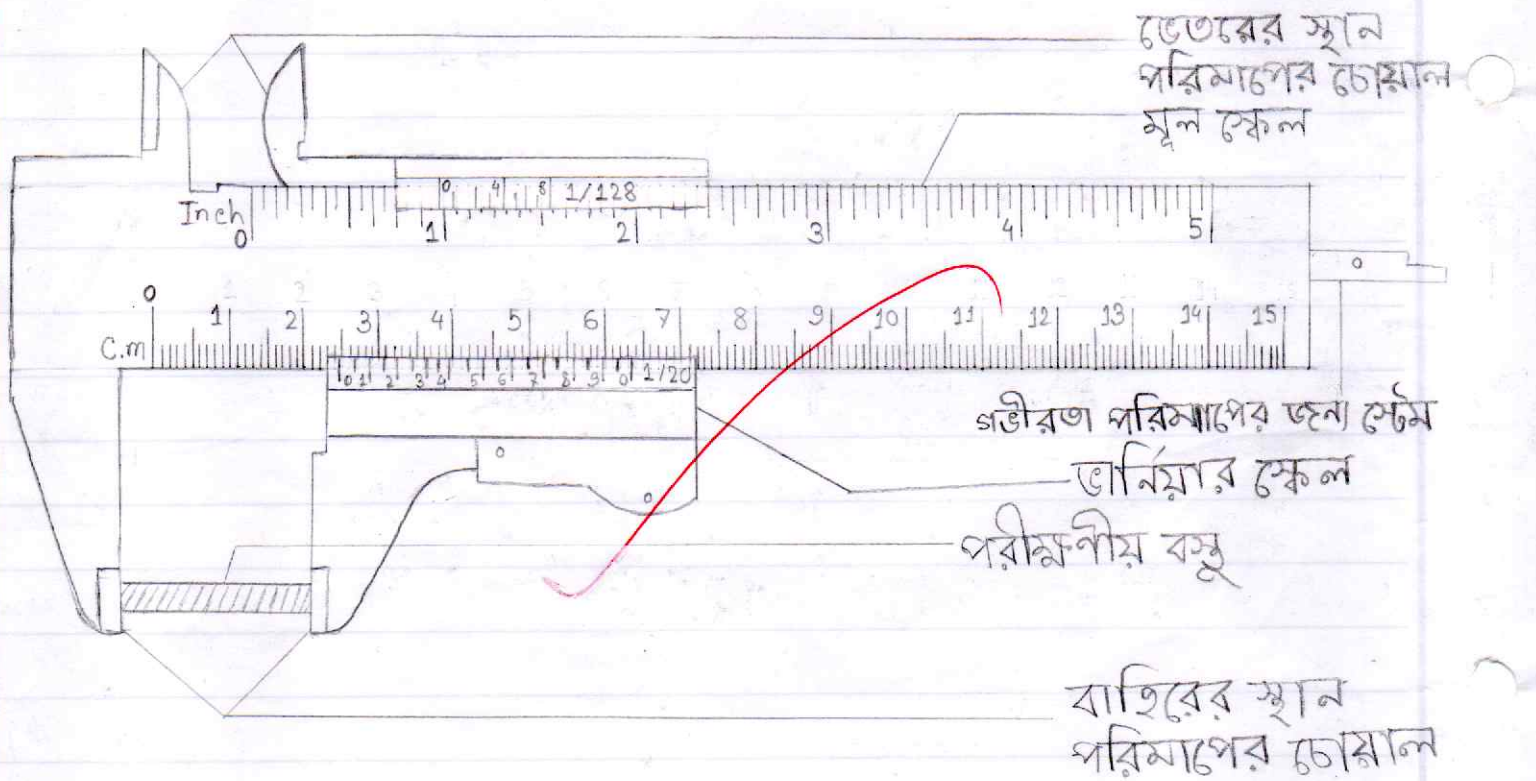 ভেতরের স্থান
পরিমাপের চোয়াল
মূল স্কেল
0 4 8 1/128
Inch
0 1 2 3 4 5
0 1 2 3 4 5 6 7 8 9 10 11 12 13 14 15
C.m
0 1 2 3 4 5 6 7 8 9 0 1/20
গভীরতা পরিমাপের জন্য স্টেম
ভার্নিয়ার স্কেল
পরীক্ষণীয় বস্তু
বাহিরের স্থান
পরিমাপের চোয়াল